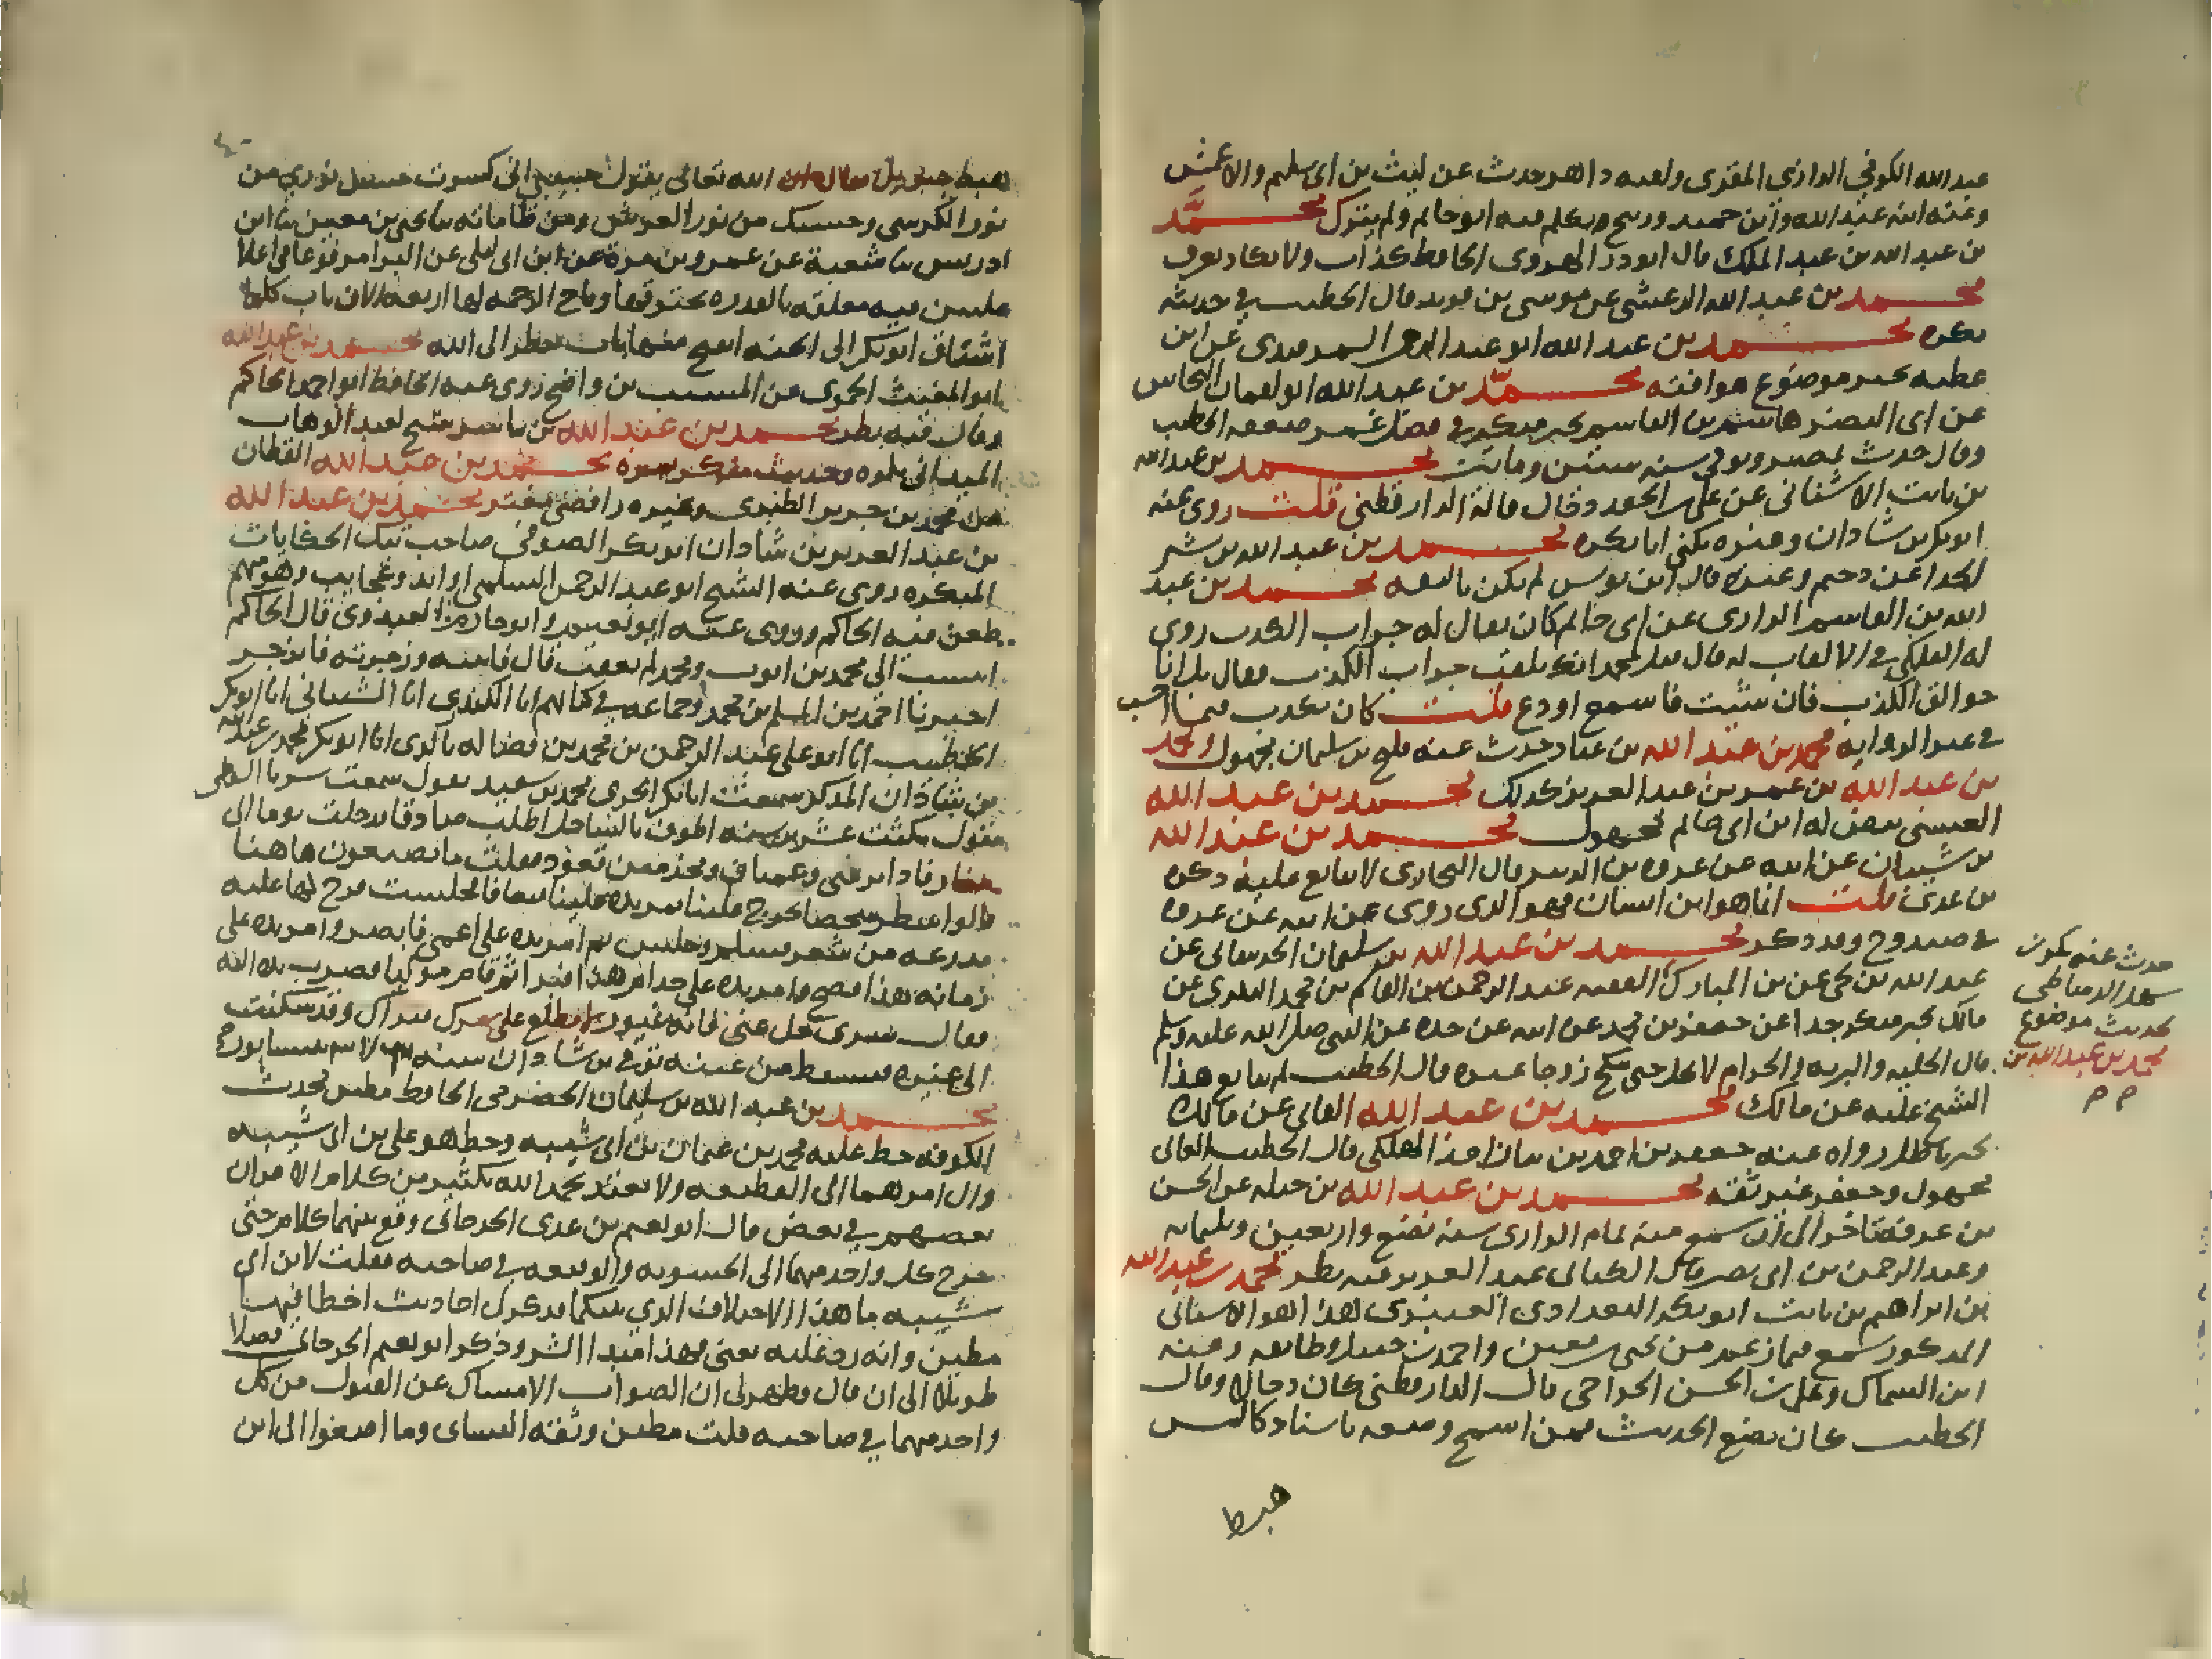 عبد الله الكوفي الرازي المقري ولقبه داهر حدث عن ليث بن ابي سليم والاعمش
وعنه ابنه عبد الله وابن حميد وزنيج تكلم فيه ابو حاتم ولم يترك محمد
بن عبد الله بن عبد الملك قال ابو ذر الهروي الحافظ كذاب ولا يكاد يعرف
محمد بن عبد الله الرعيني عن موسى بن قال الخطيب في حديثه
نكرة محمد بن عبد الله ابو عبد الرحمن السمرقندي عن ابن
بخبر موضوع هو افته محمد بن عبد الله ابو لقمان النحاس
عن ابي النضر هاشم بن القاسم بخبر منكر في فضل عمر ضعفه الخطيب
وقال حدث بمصر وتوفي سنه ستين ومايتين محمد بن عبد الله
بن ثابت الاشناني عن علي بن الجعد دجال قاله الدارقطني قلت روى عنه
ابو بكر بن شاذان وغيره يكنى ابا بكر محمد بن عبد الله بن
عن دحيم وغيره قال ابن يونس لم يكن بالثقه محمد بن عبد
الله بن القاسم الرازي عن ابي حاتم كان يقال له جراب الكذب روى
له في الالقاب له قال تلقب جراب الكذب فقال بل انا
جوالق الكذب فان شئت فاسمع او دع قلت كان يكذب فيما احسب
في غير الروايه محمد بن عبد الله بن عباد حدث عنه فليح بن سليمان مجهول محمد
بن عبد الله بن عمر بن عبد العزيز كذلك محمد بن عبد الله
بيض له ابن ابي حاتم مجهول محمد بن عبد الله
عن ابيه عن عروه بن الزبير قال البخاري لا يتابع عليه ذكره
بن عدي قلت انما هو ابن انسان فهو الذي روى عن ابيه عن عروه
في صيد وج وقد ذكر محمد بن عبد الله بن سليمان الخراساني عن
عبد الله بن يحيى عن بن المبارك الفقيه عبد الرحمن بن القاسم بن محمد عن
مالك بخبر منكر جدا عن جعفر بن محمد عن ابيه عن جده عن النبي صلى الله عليه وسلم
قال الخليه والبريه والحرام لا تحل حتى تنكح زوجا غيره قال الخطيب لم يتابع هذا
الشيخ عليه عن مالك محمد بن عبد الله عن مالك
بخبر باطل رواه عنه جعفر بن احمد بن بيان قال الخطيب
مجهول وجعفر غير ثقه محمد بن عبد الله بن جبله عن الحسن
بن عرفه تاخر الى ان سمع منه تمام الرازي سنه بضع واربعين وثلثمايه
وعبد الرحمن بن ابي نصر قال الكتاني عبد العزيز فيه نظر محمد بن عبد الله
بن ابراهيم بن ثابت ابو بكر البغدادي العنبري هذا هو الاشناني
المذكور سمع فيما زعم من يحيى بن معين واحمد بن حنبل وطايفه وعنه
ابن السماك وعلي بن الحسن الجراحي قال الدارقطني كان دجالا وقال
الخطيب كان يضع الحديث فمن اسمج وضعه باسناد كالشمس
هبط
حدث عنه بكر بن
سهل الدمياطي
بحديث موضوع
محمد بن عبد الله بن
م م
هبط جبريل فقال ان الله تعالى يقول حبيبي اني كسوت حسن يوسف من
نور الكرسي وحسنك من نور العرش ومن طاماته ثنا يحيى بن معين ثنا ابن
ادريس ثنا شعبة عن عمرو بن مرة عن ابن ابي ليلى عن البرا مرفوعا في اعلا
عليين قبه معلقه بالقدره تخترقها رياح الرحمه لها اربعه الاف باب كلما
اشتاق ابو بكر الى الجنه انفتح منها باب ينظر الى الله محمد بن عبد الله
ابو المغيث الحموي عن المسيب بن واضح روى عنه الحافظ ابو احمد الحاكم
وقال فيه نظر محمد بن عبد الله بن ياسر شيخ لعبد الوهاب
الميداني نكره وحديثه منكر بمره محمد بن عبد الله القطان
عن محمد بن جرير الطبري وغيره رافضي مفتر محمد بن عبد الله
بن عبد العزيز بن شاذان ابو بكر الصوفي صاحب تلك الحكايات
المنكره روى عنه الشيخ ابو عبد الرحمن السلمي اوابد وعجايب وهو متهم
طعن فيه الحاكم وروى عنه ابو نعيم وابو حازم العبدوي قال الحاكم
انتسب الى محمد بن ايوب ومحمد لم يعقب قال فاتيته وزجرته فانزجر
اخبرنا احمد بن المسلم بن محمد وجماعه في كتابهم انا الكندي انا الشيباني انا ابو بكر
الخطيب انا ابو علي عبد الرحمن بن محمد بن فضاله بالري انا ابو بكر محمد بن عبد الله
بن شاذان المذكر سمعت ابا بكر الحربي محمد بن سعيد يقول سمعت سريا السقطي
يقول مكثت عشرين سنه اطوف بالساحل اطلب صادقا فدخلت يوما الى
مغار فاذا بزمنى وعميان ومجذمين قعود فقلت ما تصنعون هاهنا
قالوا ننتظر شخصا يخرج علينا يمر يده علينا فنعافا فجلست فخرج كهل عليه
مدرعه من شعر فسلم وجلس ثم امر يده على اعمى فابصر وامر يده على
زمانه هذا فصح وامر يده على جذام هذا فبرا ثم قام موليا فضربت بيدي اليه
فقال سري خل عني فانه غيور لا يطلع على سرك فيراك وقد سكنت
الى غيره فتسقط من عينه توفي بن شاذان سنه بنيسابور
محمد بن عبد الله بن سليمان الحضرمي الحافظ مطين محدث
الكوفه حط عليه محمد بن عثمان بن ابي شيبه وحط هو على بن ابي شيبه
وال امرهما الى القطيعه ولا يعتد بحمد الله بكثير من كلام الاقران
بعضهم في بعض قال ابو نعيم بن عدي الجرجاني وقع بينهما كلام حتى
خرج كل واحد منهما الى الخشونه والوقيعه في صاحبه فقلت لابن ابي
شيبه ما هذا الاختلاف الذي بينكما فذكر لي احاديث اخطا فيها
مطين وانه رد عليه يعني فهذا مبدا الشر وذكر ابو نعيم الجرجاني فصلا
طويلا الى ان قال وظهر لي ان الصواب الامساك عن القبول من كل
واحد منهما في صاحبه قلت مطين وثقه الناس وما اصغوا الى ابن